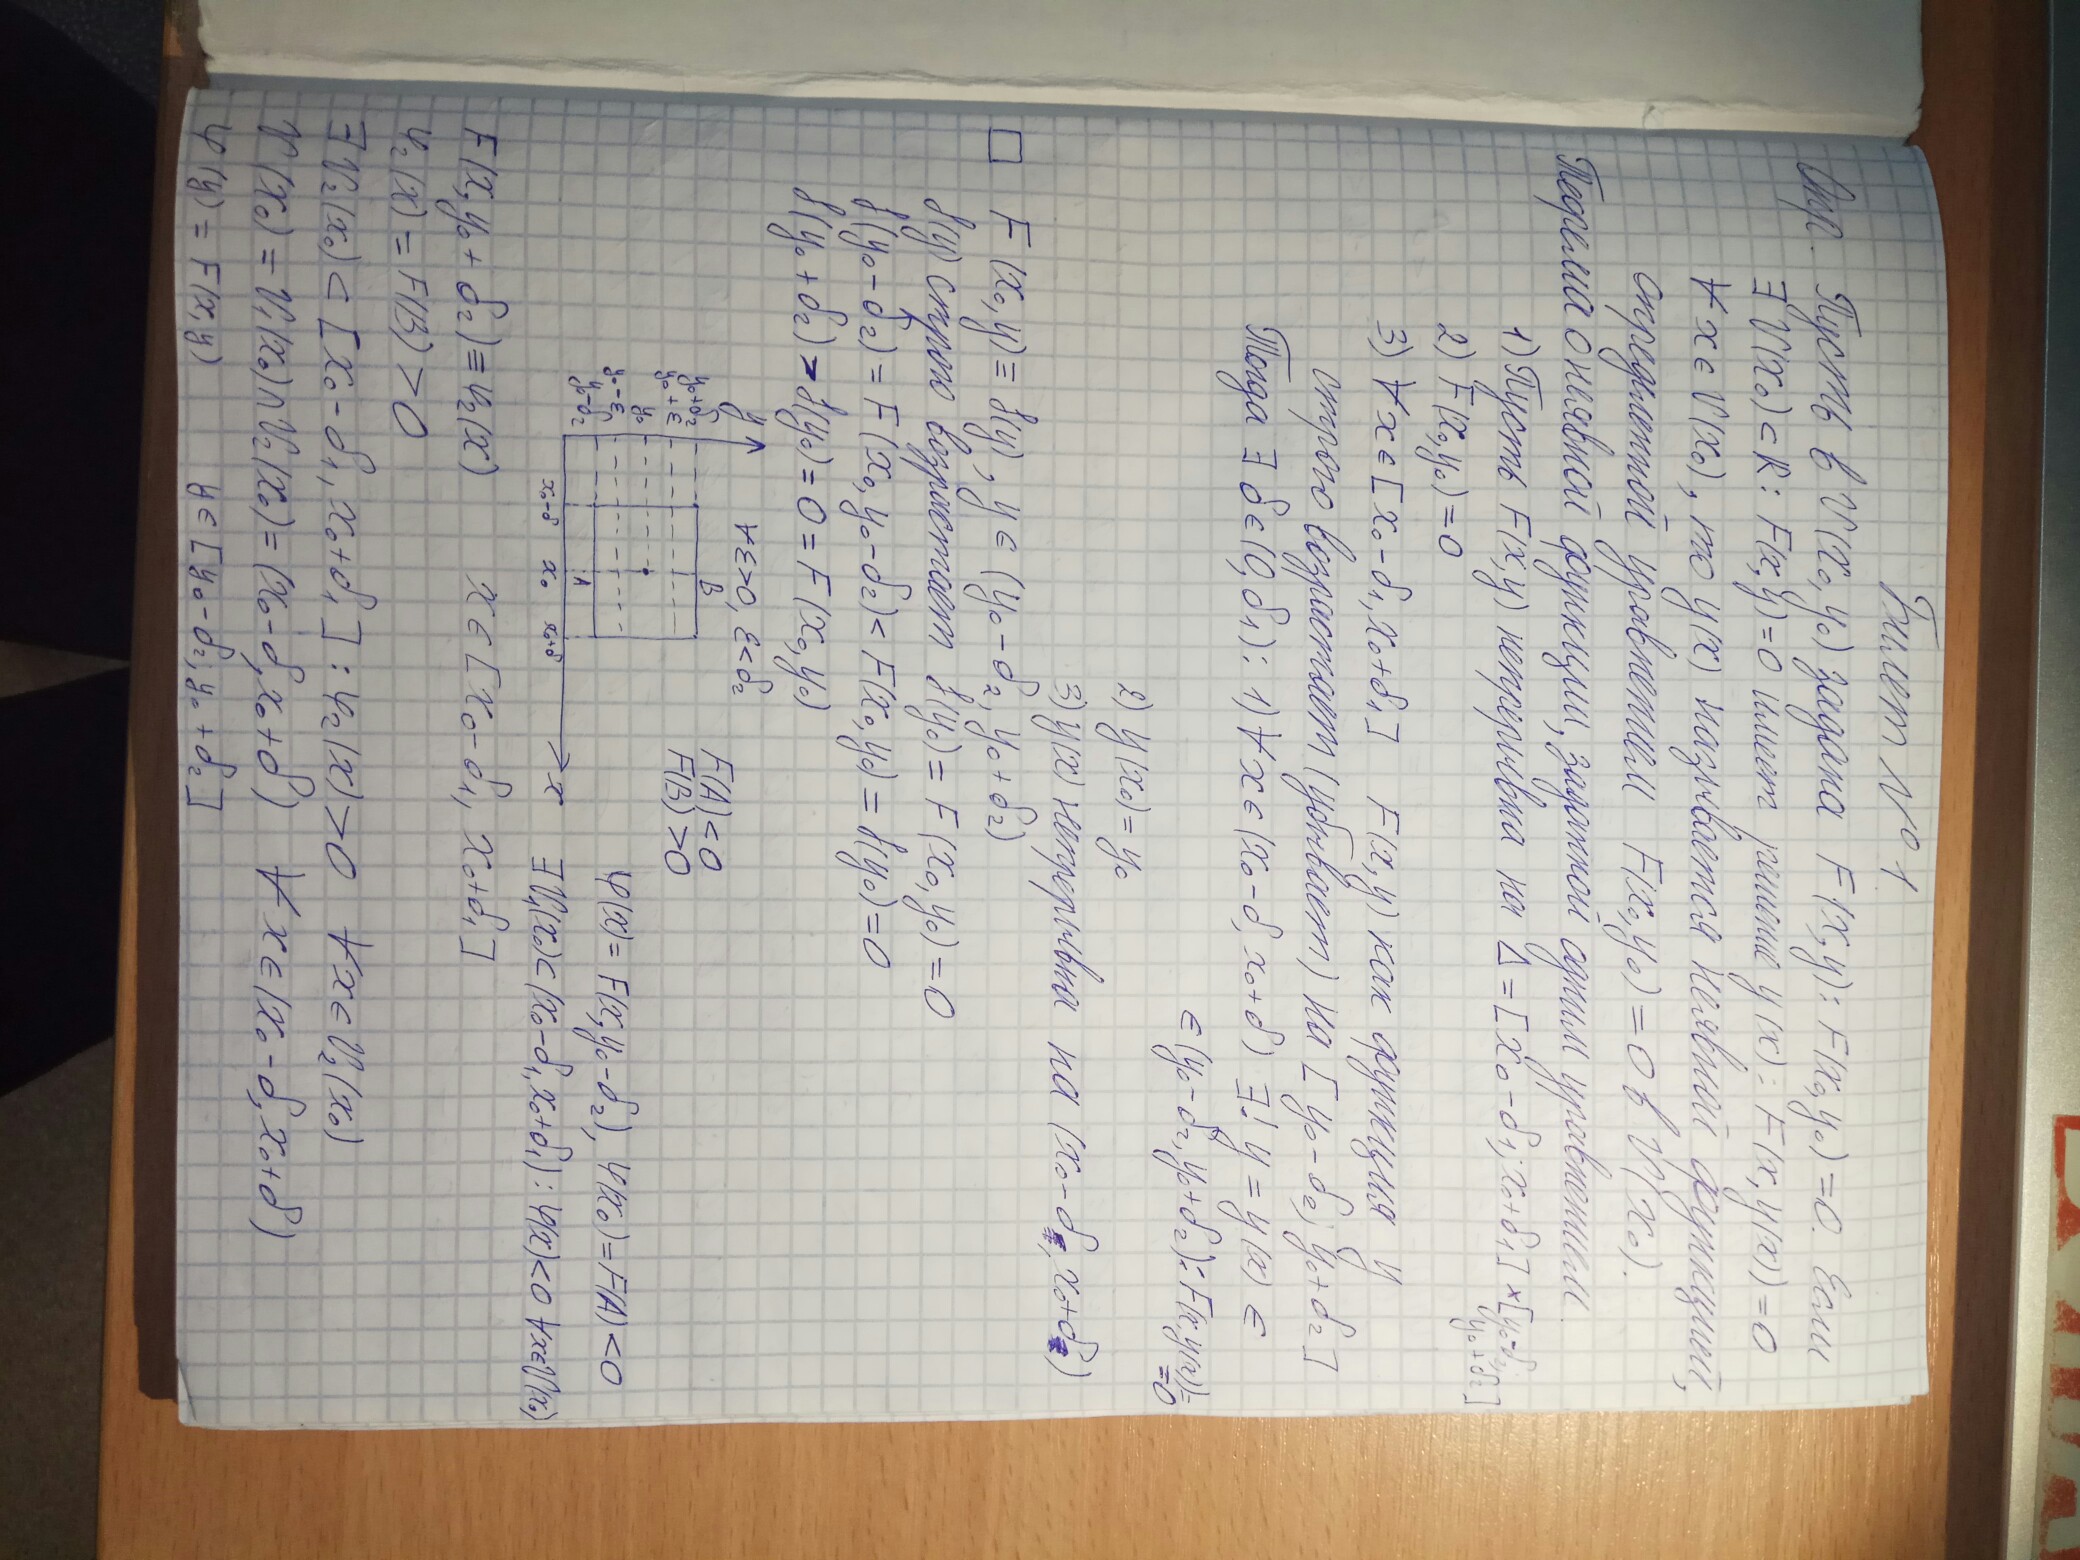 Билет № 1
Опр. Пусть в V(x₀, y₀) задана F(x, y): F(x₀, y₀) = 0. Если
∃ V(x₀) ⊂ R: F(x, y) = 0 имеет решение y(x): F(x, y(x)) = 0
∀ x ∈ V(x₀), то y(x) называется неявной функцией,
определенной уравнением F(x₀, y₀) = 0 в V(x₀).
Теорема о неявной функции, заданной одним уравнением.
1) Пусть F(x, y) непрерывна на Δ = [x₀ - δ₁; x₀ + δ₁] × [y₀ - δ₂;
y₀ + δ₂]
2) F(x₀, y₀) = 0
3) ∀ x ∈ [x₀ - δ₁, x₀ + δ₁] F(x, y) как функция y
строго возрастает (убывает) на [y₀ - δ₂; y₀ + δ₂]
Тогда ∃ δ ∈ (0, δ₁): 1) ∀ x ∈ (x₀ - δ, x₀ + δ) ∃! y = y(x) ∈
∈ (y₀ - δ₂, y₀ + δ₂): F(x, y(x)) =
= 0
2) y(x₀) = y₀
3) y(x) непрерывна на (x₀ - δ, x₀ + δ)
□ F(x₀, y) ≡ f(y), y ∈ (y₀ - δ₂, y₀ + δ₂)
f(y) строго возрастает f(y₀) = F(x₀, y₀) = 0
f(y₀ - δ₂) = F(x₀, y₀ - δ₂) < F(x₀, y₀) = f(y₀) = 0
f(y₀ + δ₂) > f(y₀) = 0 = F(x₀, y₀)
y ∀ ε > 0, ε < δ₂
B
F(A) < 0
F(B) > 0
y₀ + δ₂
y₀ + ε
y₀
y₀ - ε
y₀ - δ₂
A
x₀ - δ x₀ x₀ + δ x
φ(x) = F(x, y₀ - δ₂), φ(x₀) = F(A) < 0
∃ V₁(x₀) ⊂ (x₀ - δ₁, x₀ + δ₁): φ(x) < 0 ∀ x ∈ V(x₀)
F(x, y₀ + δ₂) ≡ φ₂(x) x ∈ [x₀ - δ₁, x₀ + δ₁]
φ₂(x) = F(B) > 0
∃ V₂(x₀) ⊂ [x₀ - δ₁, x₀ + δ₁]: φ₂(x) > 0 ∀ x ∈ V₂(x₀)
V(x₀) = V₁(x₀) ∩ V₂(x₀) = (x₀ - δ, x₀ + δ) ∀ x ∈ (x₀ - δ, x₀ + δ)
φ(y) = F(x, y) y ∈ [y₀ - δ₂; y₀ + δ₂]